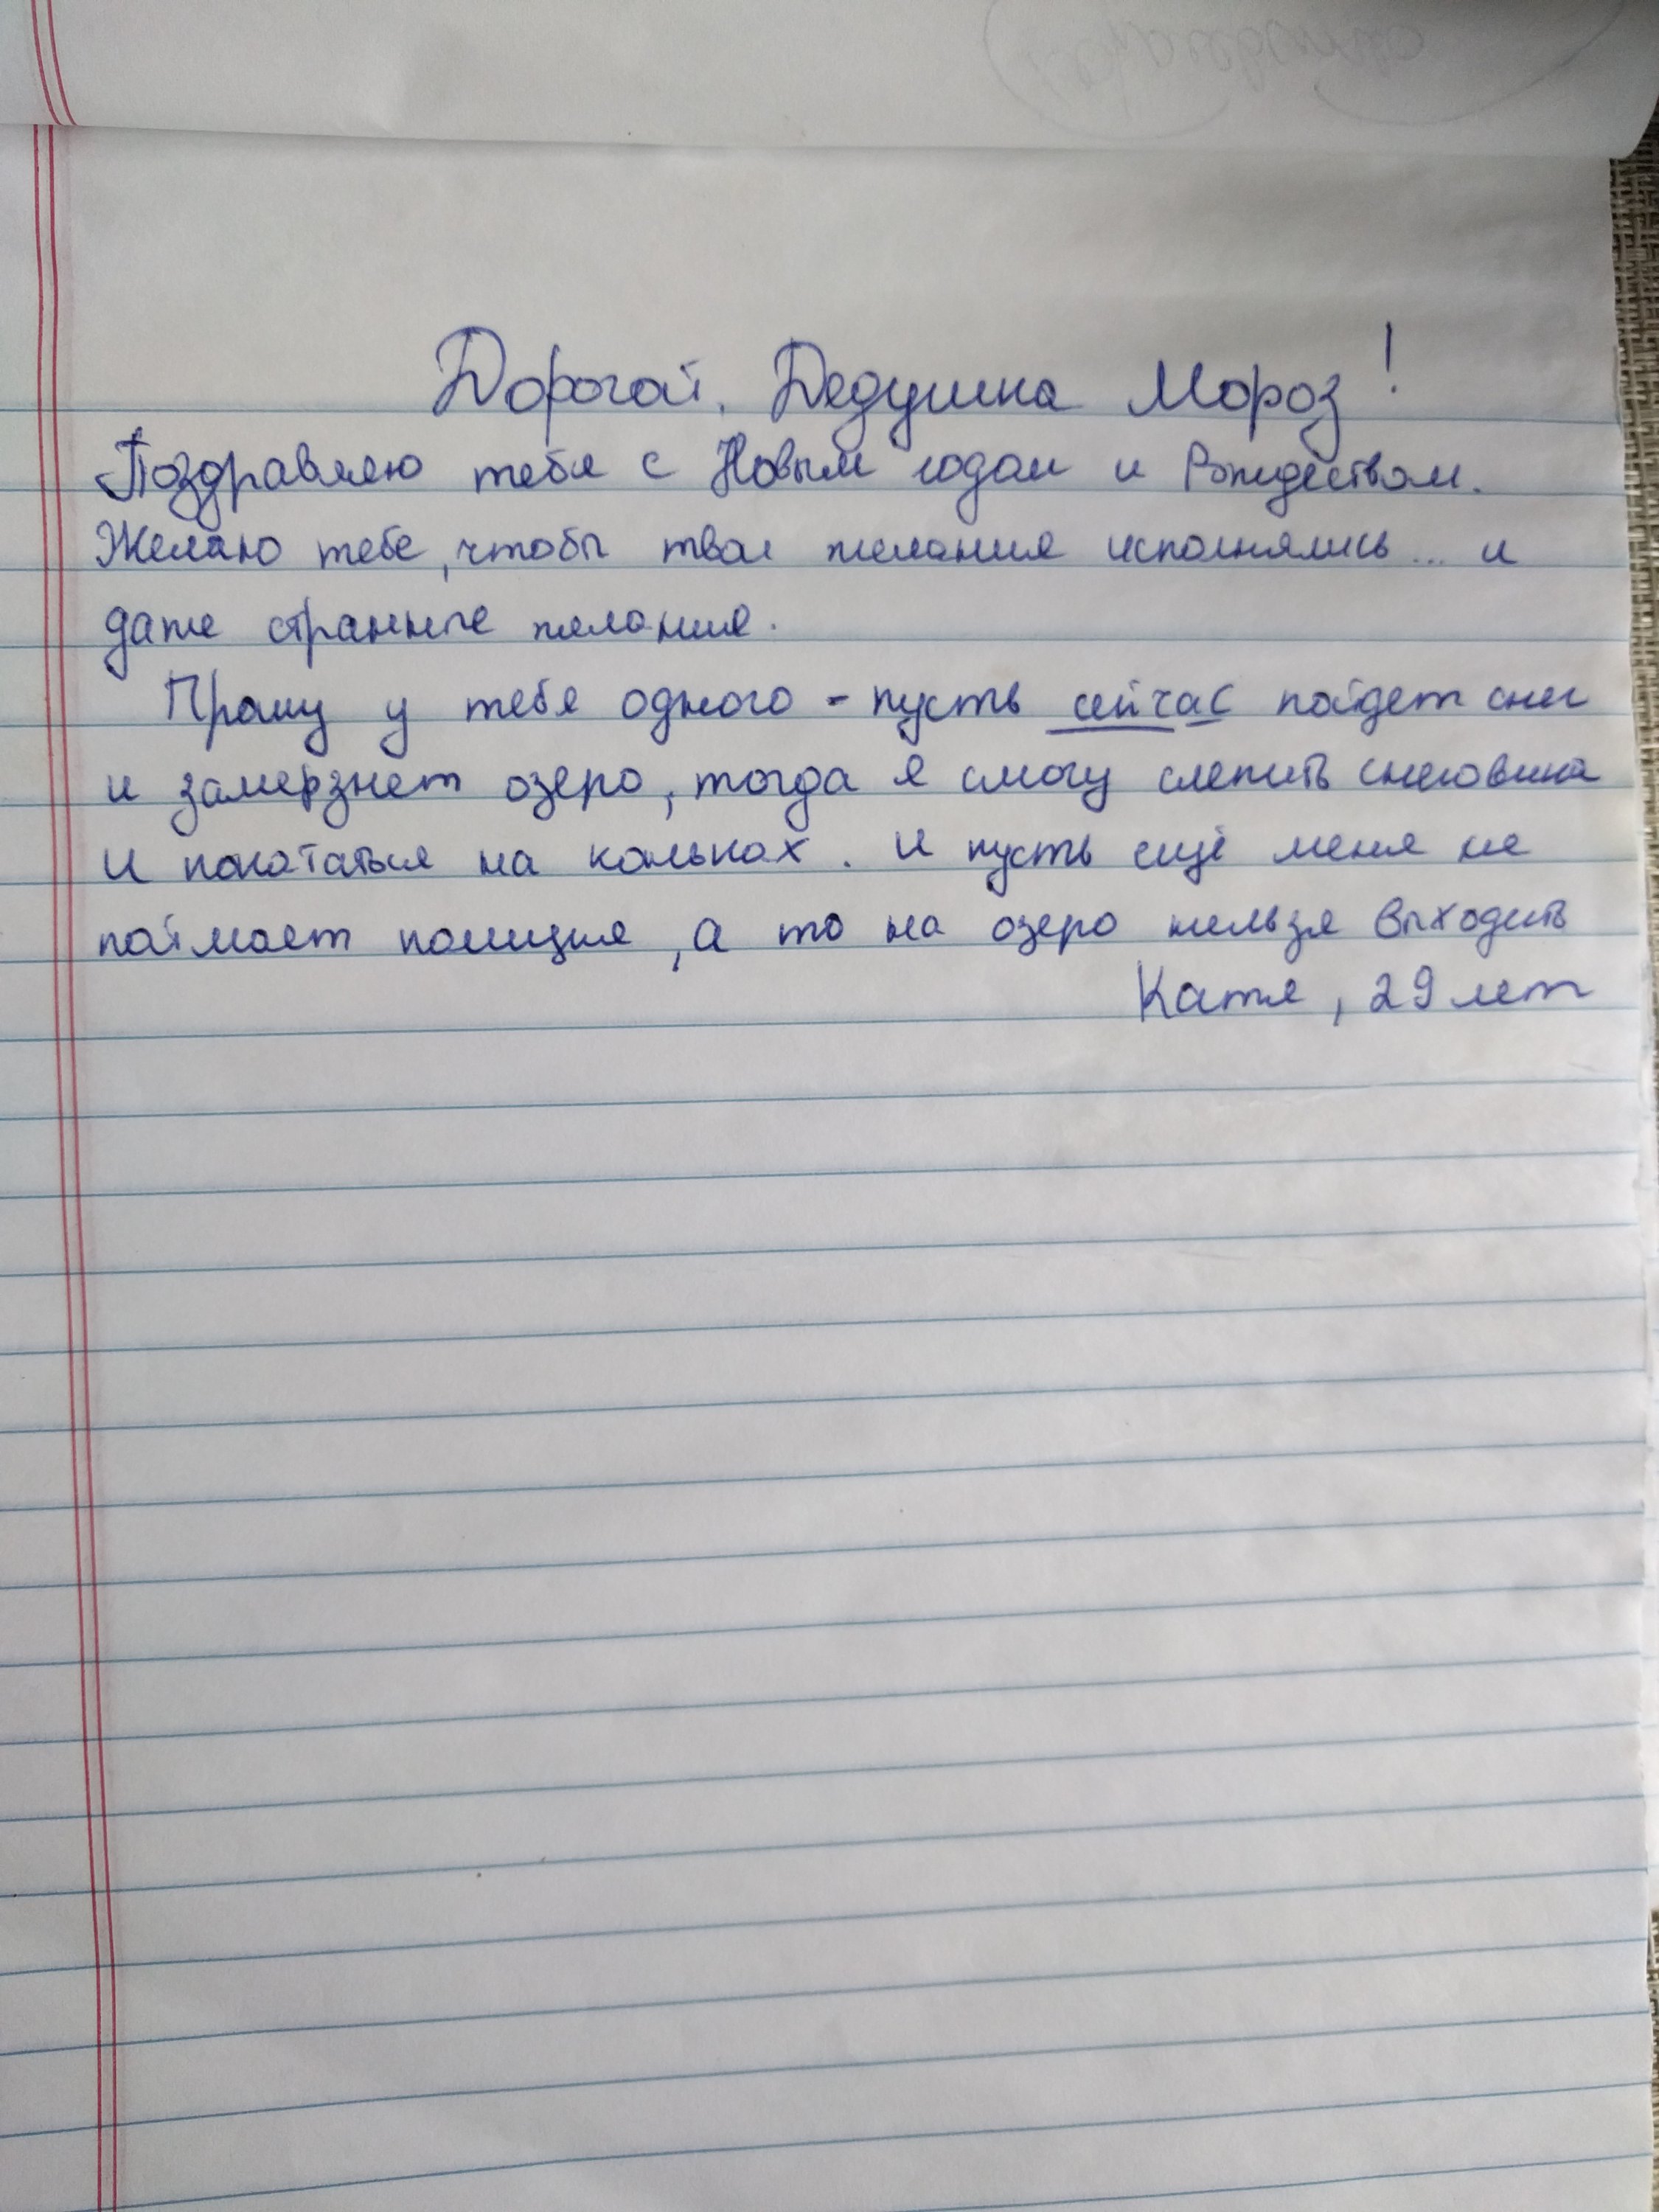 Дорогой, Дедушка Мороз!
Поздравляю тебя с Новым годом и Рождеством.
Желаю тебе, чтобы твои желания исполнялись... и
даже странные желания.
Прошу у тебя одного - пусть сейчас пойдет снег
и замерзнет озеро, тогда я смогу слепить снеговика
и покататься на коньках. И пусть ещё меня не
поймает полиция, а то на озеро нельзя выходить
Катя, 29 лет